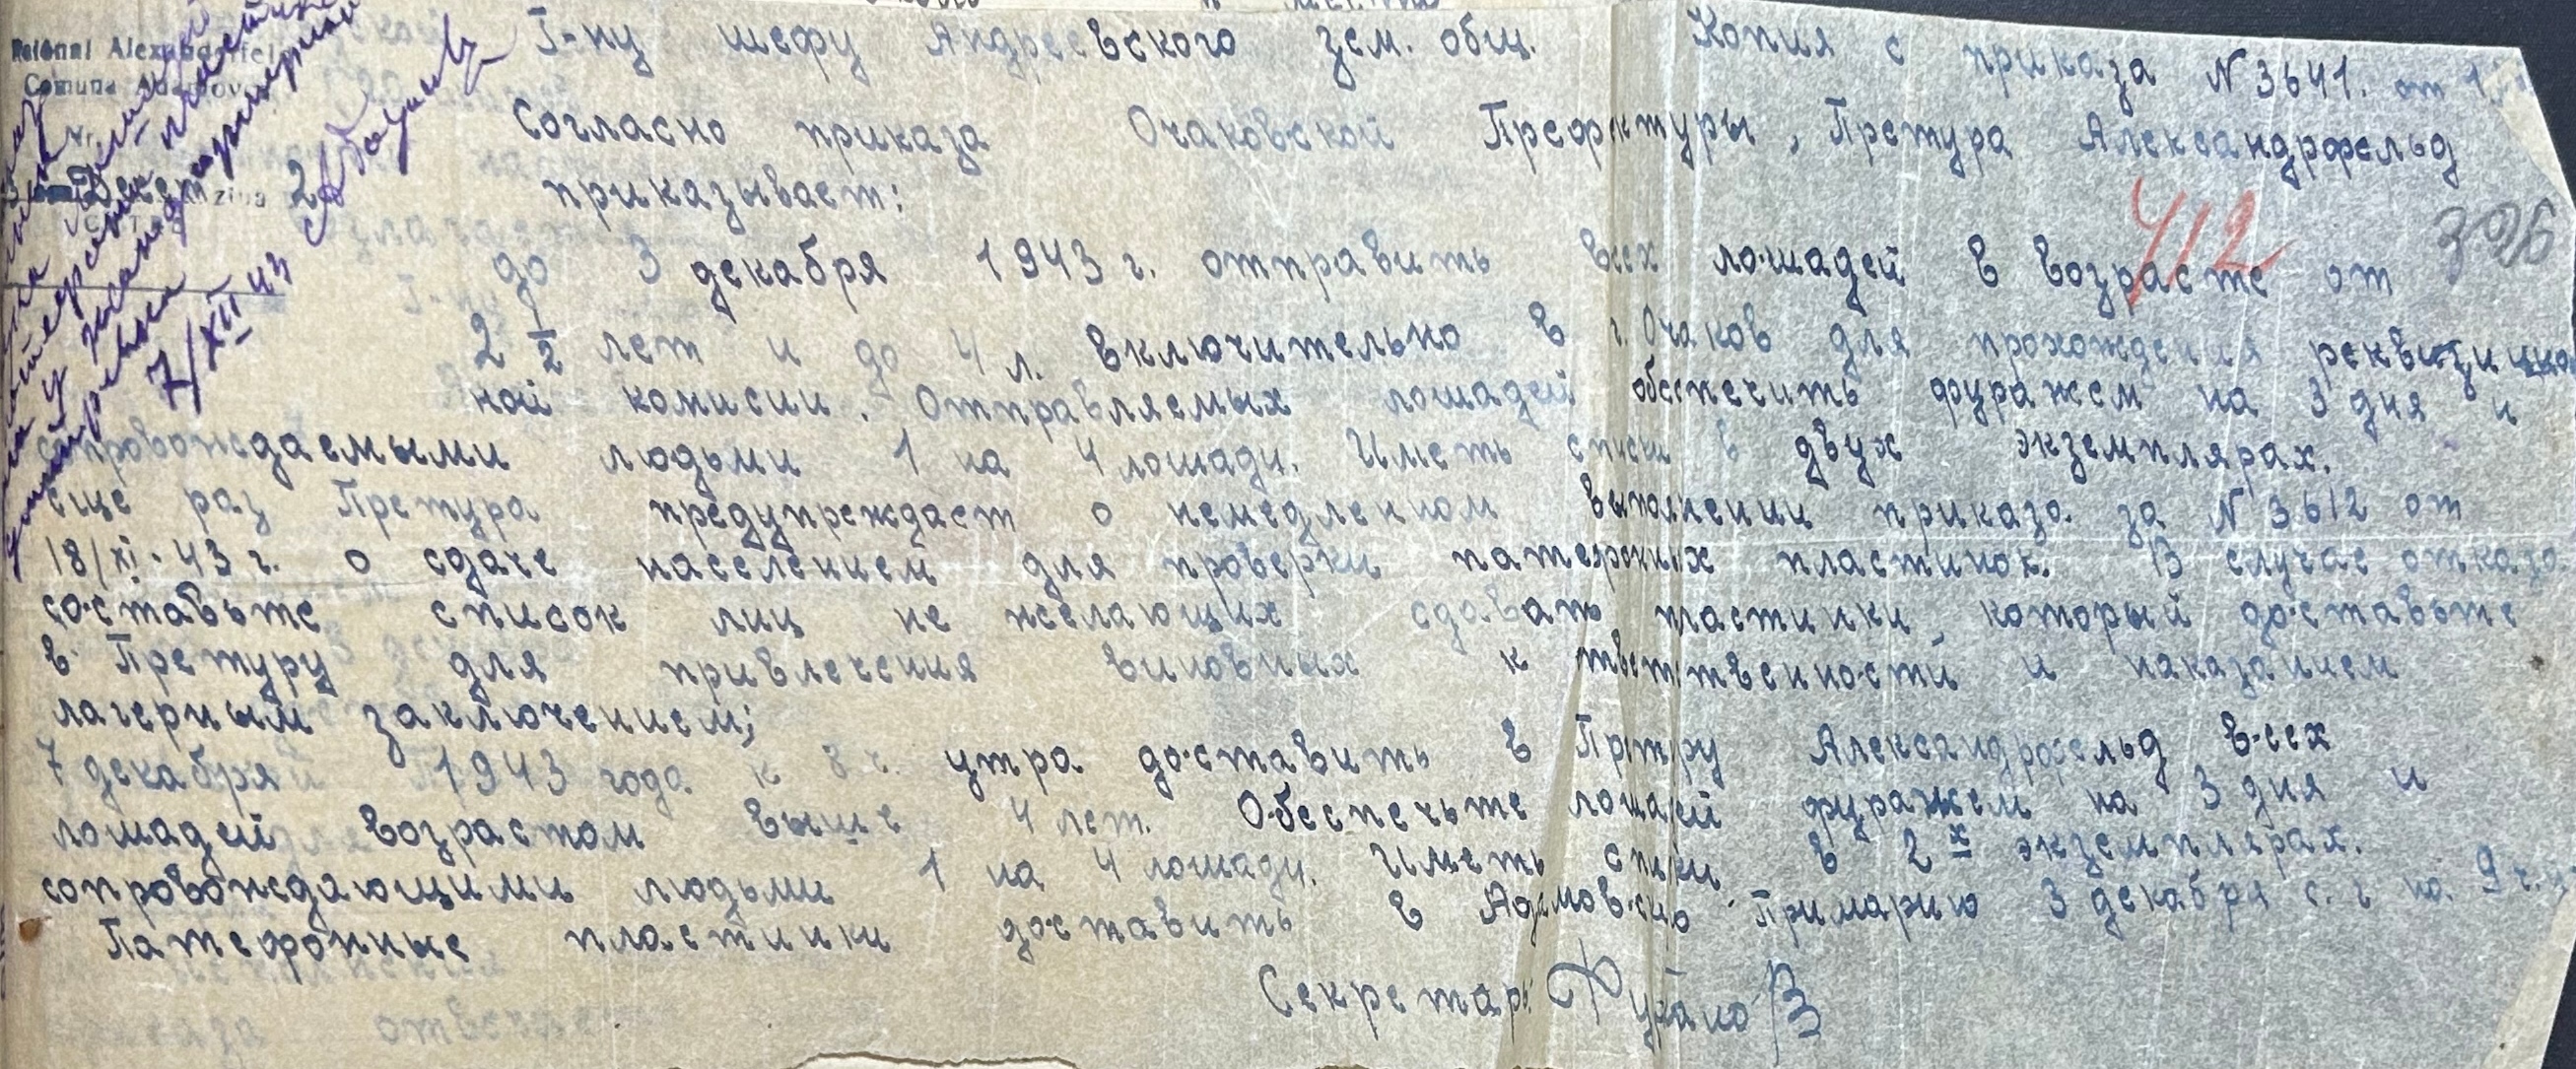 Raionul Alexanderfeld
Comuna Adamovca
Г-ну шефу Андреевского зем. общ. Копия с приказа N 3641. от
Согласно приказа Очаковской Префектуры, Претура Александрфельд
приказывает:
412
396
до 3 декабря 1943 г. отправить всех лошадей в возрасте от
2 1/2 лет и до 4 л. включительно в г. Очаков для прохождения реквизицио
ной комисии. Отправляемых лошадей обеспечить фуражем на 3 дня и
сопровождаемыми людьми 1 на 4 лошади. Иметь списки в двух экземплярах.
еще раз Претура предупреждает о немедленном выполнении приказа за N 3612 от
18/XI-43 г. о сдаче населением для проверки патефонных пластинок. В случае отказа
составьте список лиц не желающих сдавать пластинки, который доставьте
в Претуру для привлечения виновных к ответственности и наказанием
лагерным заключением;
7 декабря 1943 года к 8 ч. утра доставить в Претуру Александрфельд всех
лошадей возрастом выше 4 лет. Обеспечьте лошадей фуражем на 3 дня и
сопровождающими людьми 1 на 4 лошади. Иметь списки в 2х экземплярах.
Патефонные пластинки доставить в Адамовскую Примарию 3 декабря с. г. на 9 ч.
Секретарь
7/XII 43